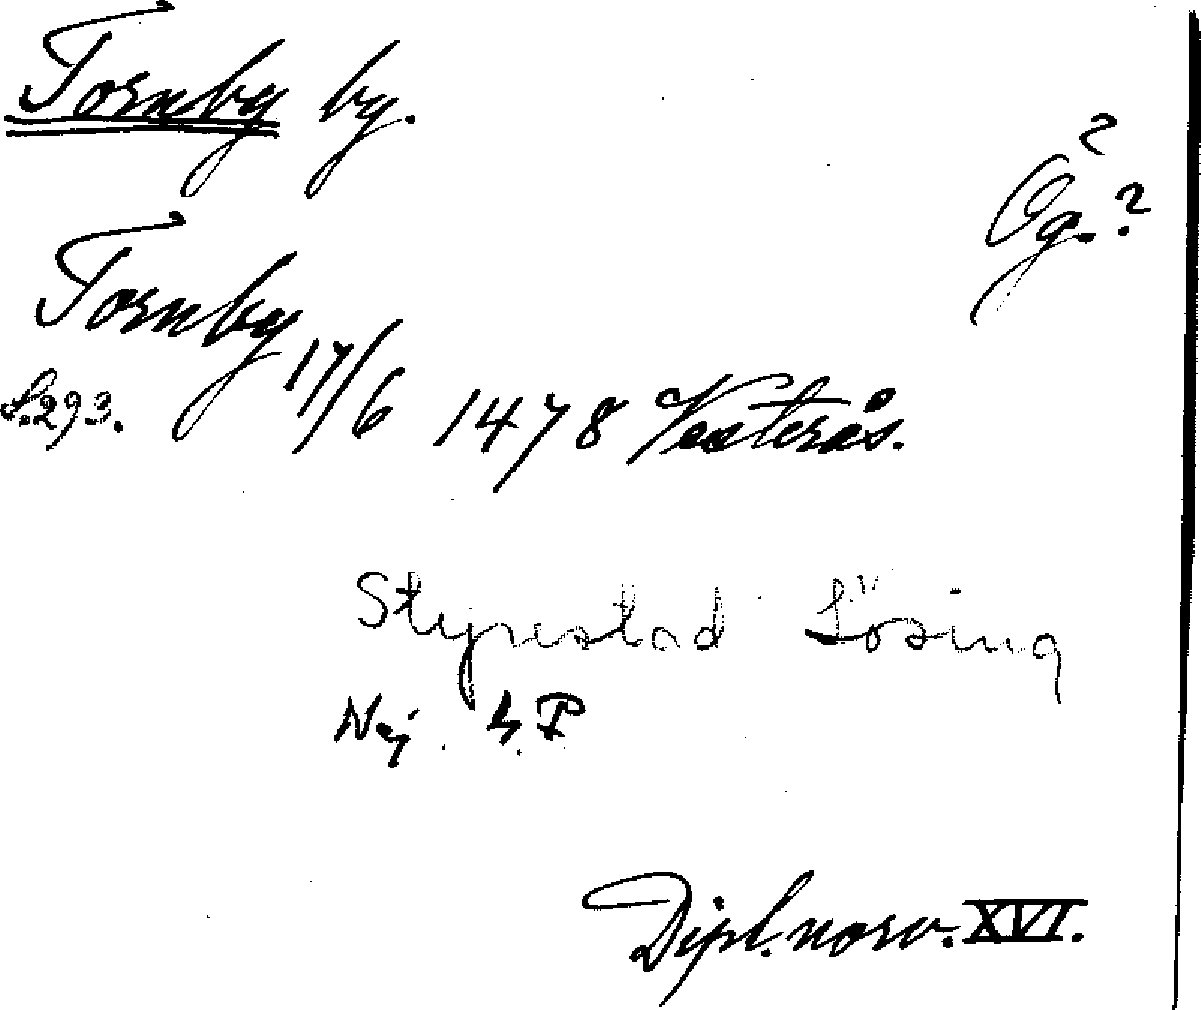 Tornby by.
Ög.?
Tornby 17/6 1478 Vesterås.
S.293.
Styrestad Lösing
Nej.
Dipl. norv. XVI.